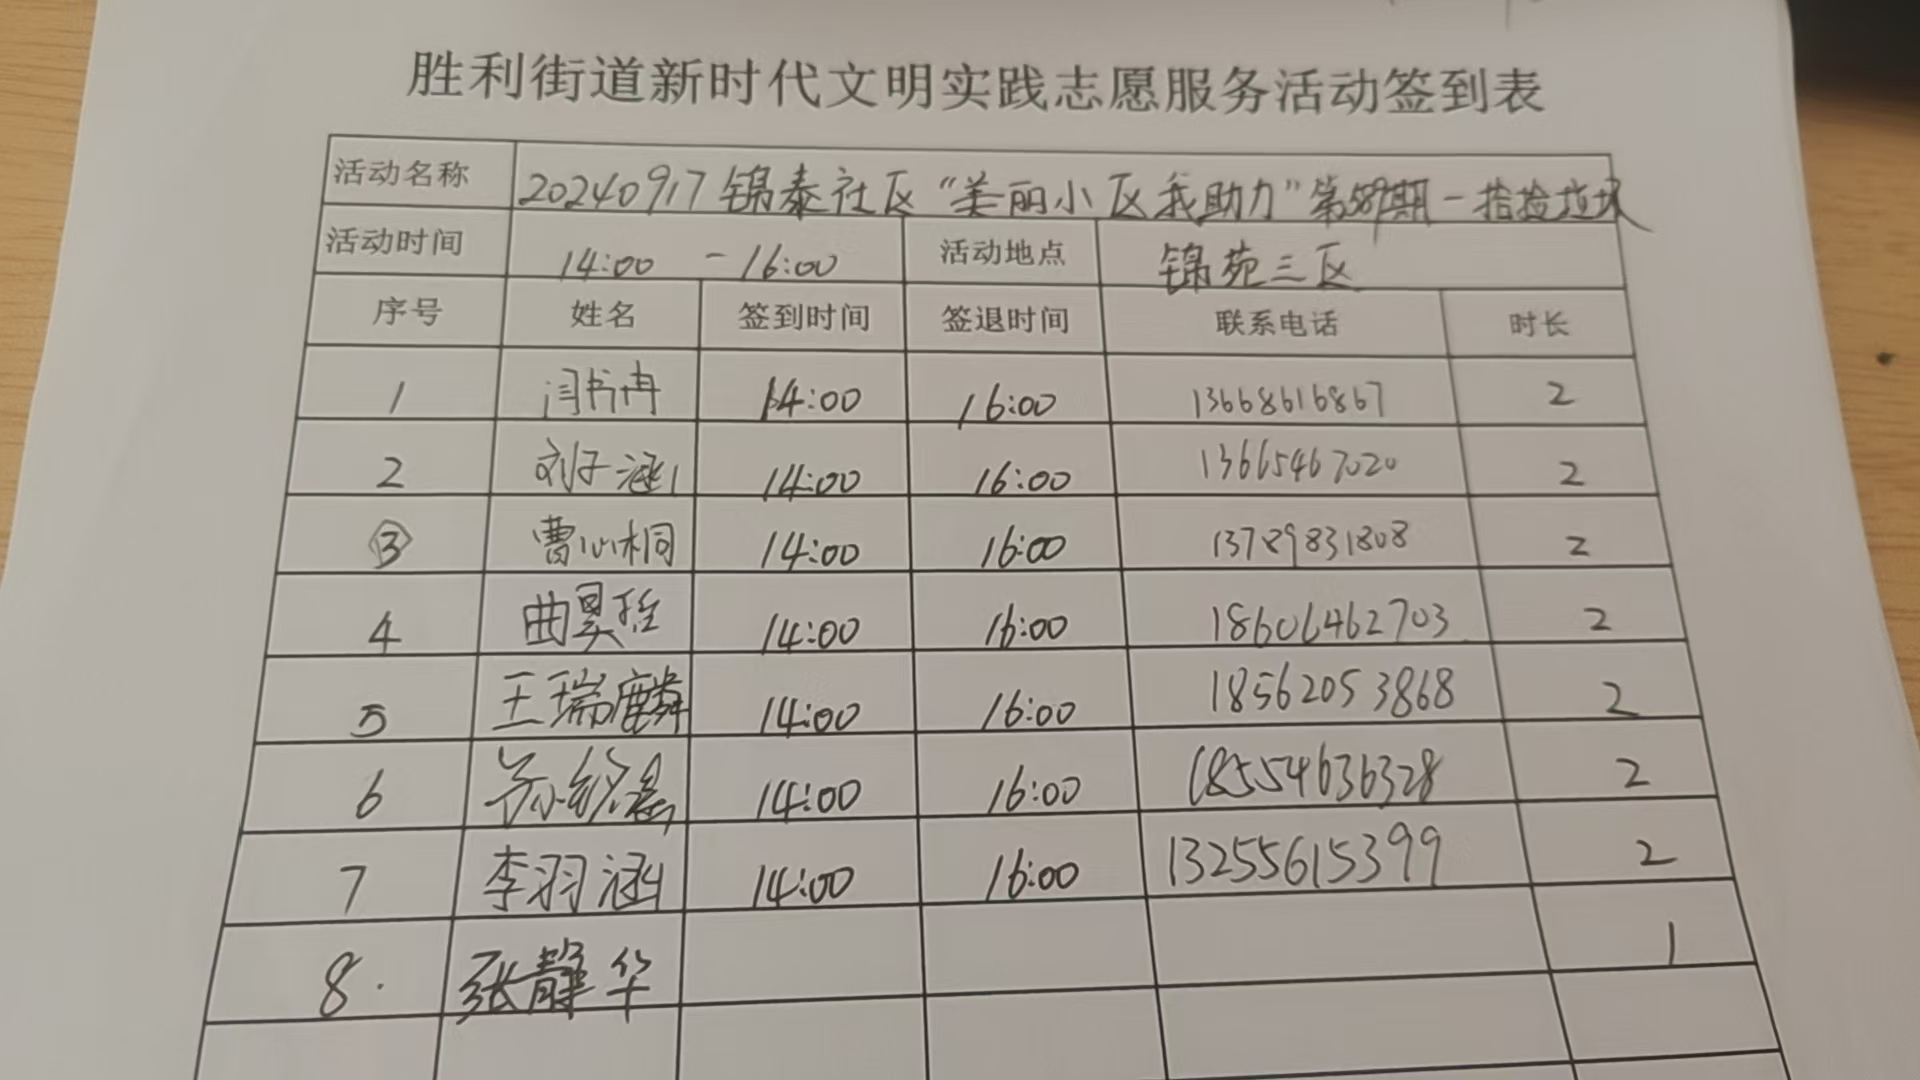 胜利街道新时代文明实践志愿服务活动签到表
活动名称 20240917锦泰社区“美丽小区我助力”第59期-捡捡垃圾
活动时间 14:00 - 16:00 活动地点 锦苑三区
序号 姓名 签到时间 签退时间 联系电话 时长
1 闫书冉 14:00 16:00 13668616867 2
2 刘子涵 14:00 16:00 13665467020 2
3 曹心桐 14:00 16:00 13789831808 2
4 曲昊 14:00 16:00 18606462703 2
5 王瑞麟 14:00 16:00 18562053868 2
6 孙 14:00 16:00 18554636328 2
7 李羽涵 14:00 16:00 13255615399 2
8. 张静华 1